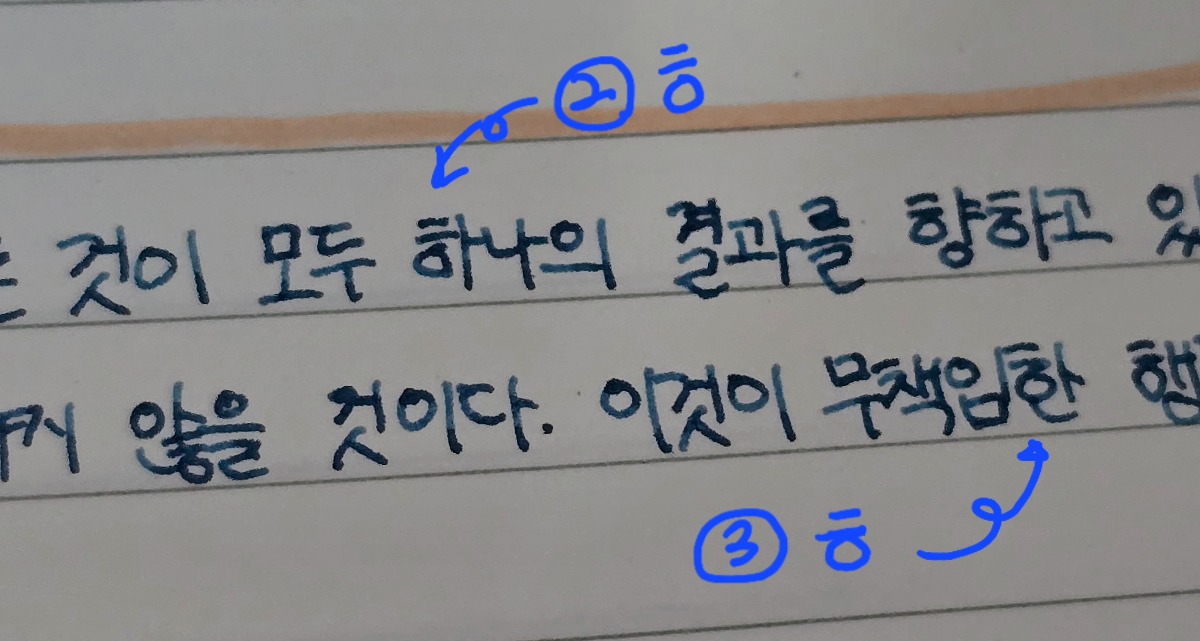 ② ㅎ
것이 모두 하나의 결과를 향하고 있
않을 것이다. 이것이 무책임한 행
③ ㅎ